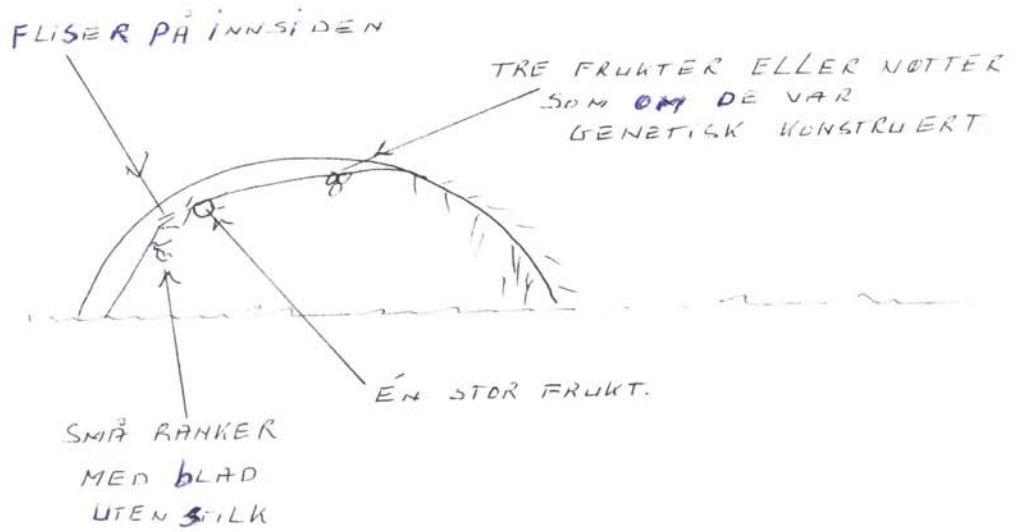 FLISER PÅ INNSIDEN
TRE FRUKTER ELLER NØTTER
SOM OM DE VAR
GENETISK KONSTRUERT
ÉN STOR FRUKT.
SMÅ RANKER
MED bLAD
UTEN STILK